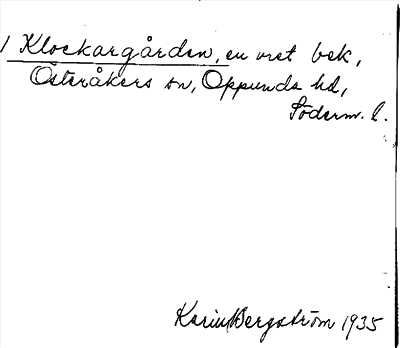 / Klockargården, en vret bek,
Österåkers sn, Oppunda hd,
Söderm. l.
Karin Bergström 1935